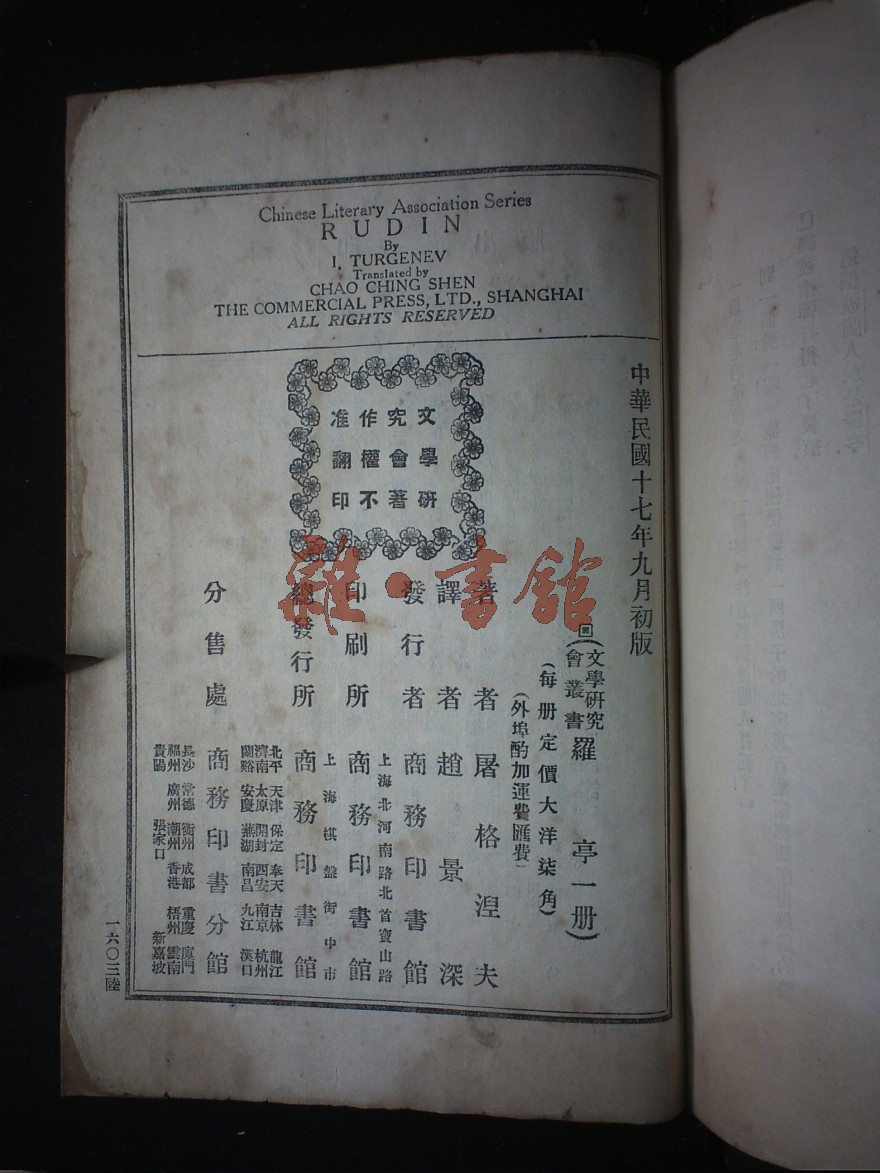 Chinese Literary Association Series
RUDIN
By
I. TURGENEV
Translated by
CHAO CHING SHEN
THE COMMERCIAL PRESS, LTD., SHANGHAI
ALL RIGHTS RESERVED
中華民國十七年九月初版
文學研
究會著
作權不
准翻印
(文學研究會叢書羅亭一册)
(每册定價大洋柒角)
(外埠酌加運費匯費)
著者 屠格涅夫
譯者 趙景深
發行者 商務印書館
上海北河南路北首寶山路
印刷所 商務印書館
上海棋盤街中市
總發行所 商務印書館
北平 天津 保定 奉天 吉林 龍江
濟南 太原 開封 西安 南京 杭州
蘭谿 安慶 蕪湖 南昌 九江 漢口
分售處 商務印書分館
長沙 常德 衡州 成都 重慶 廈門
福州 廣州 潮州 香港 梧州 雲南
貴陽 張家口 新嘉坡
一六〇三陸
雜·書館